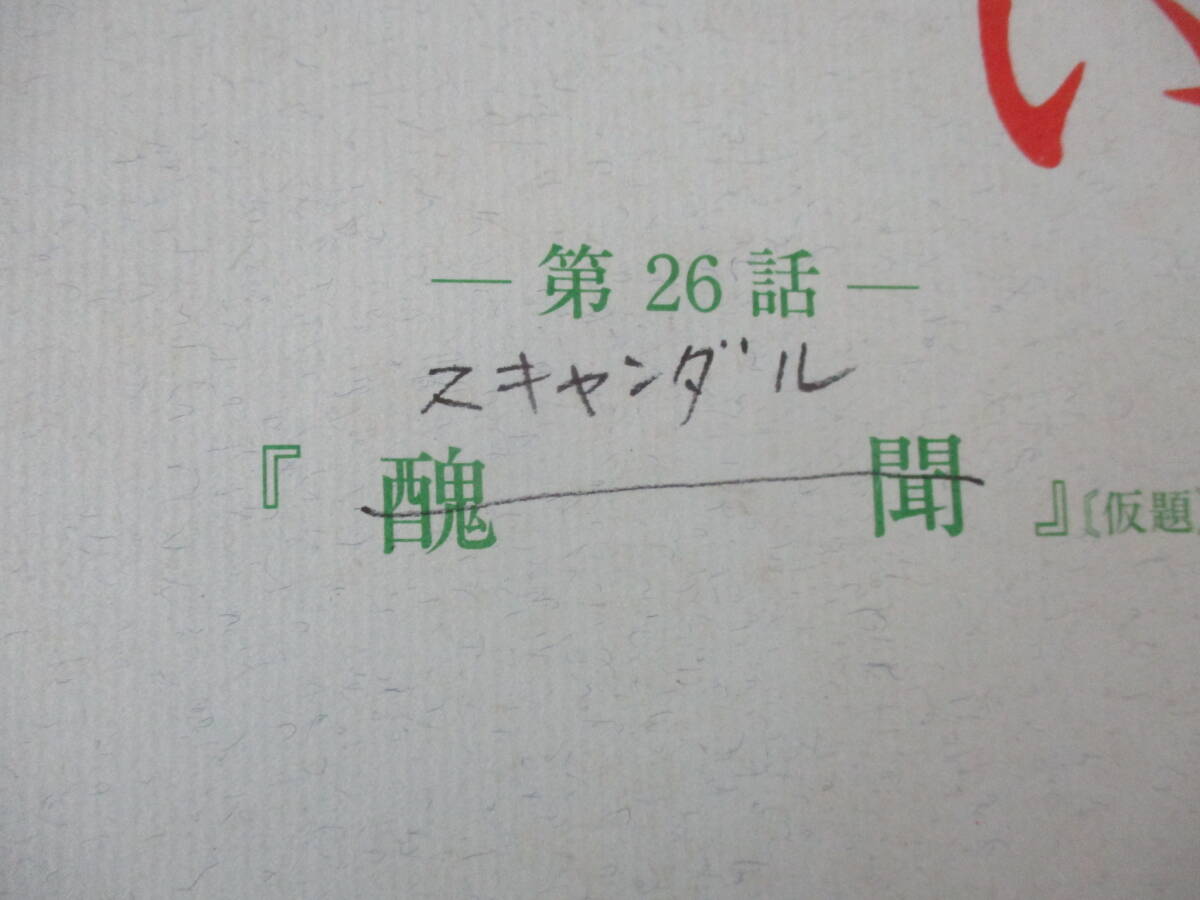 — 第 26 話 —
スキャンダル
『 醜 聞 』〔仮題〕